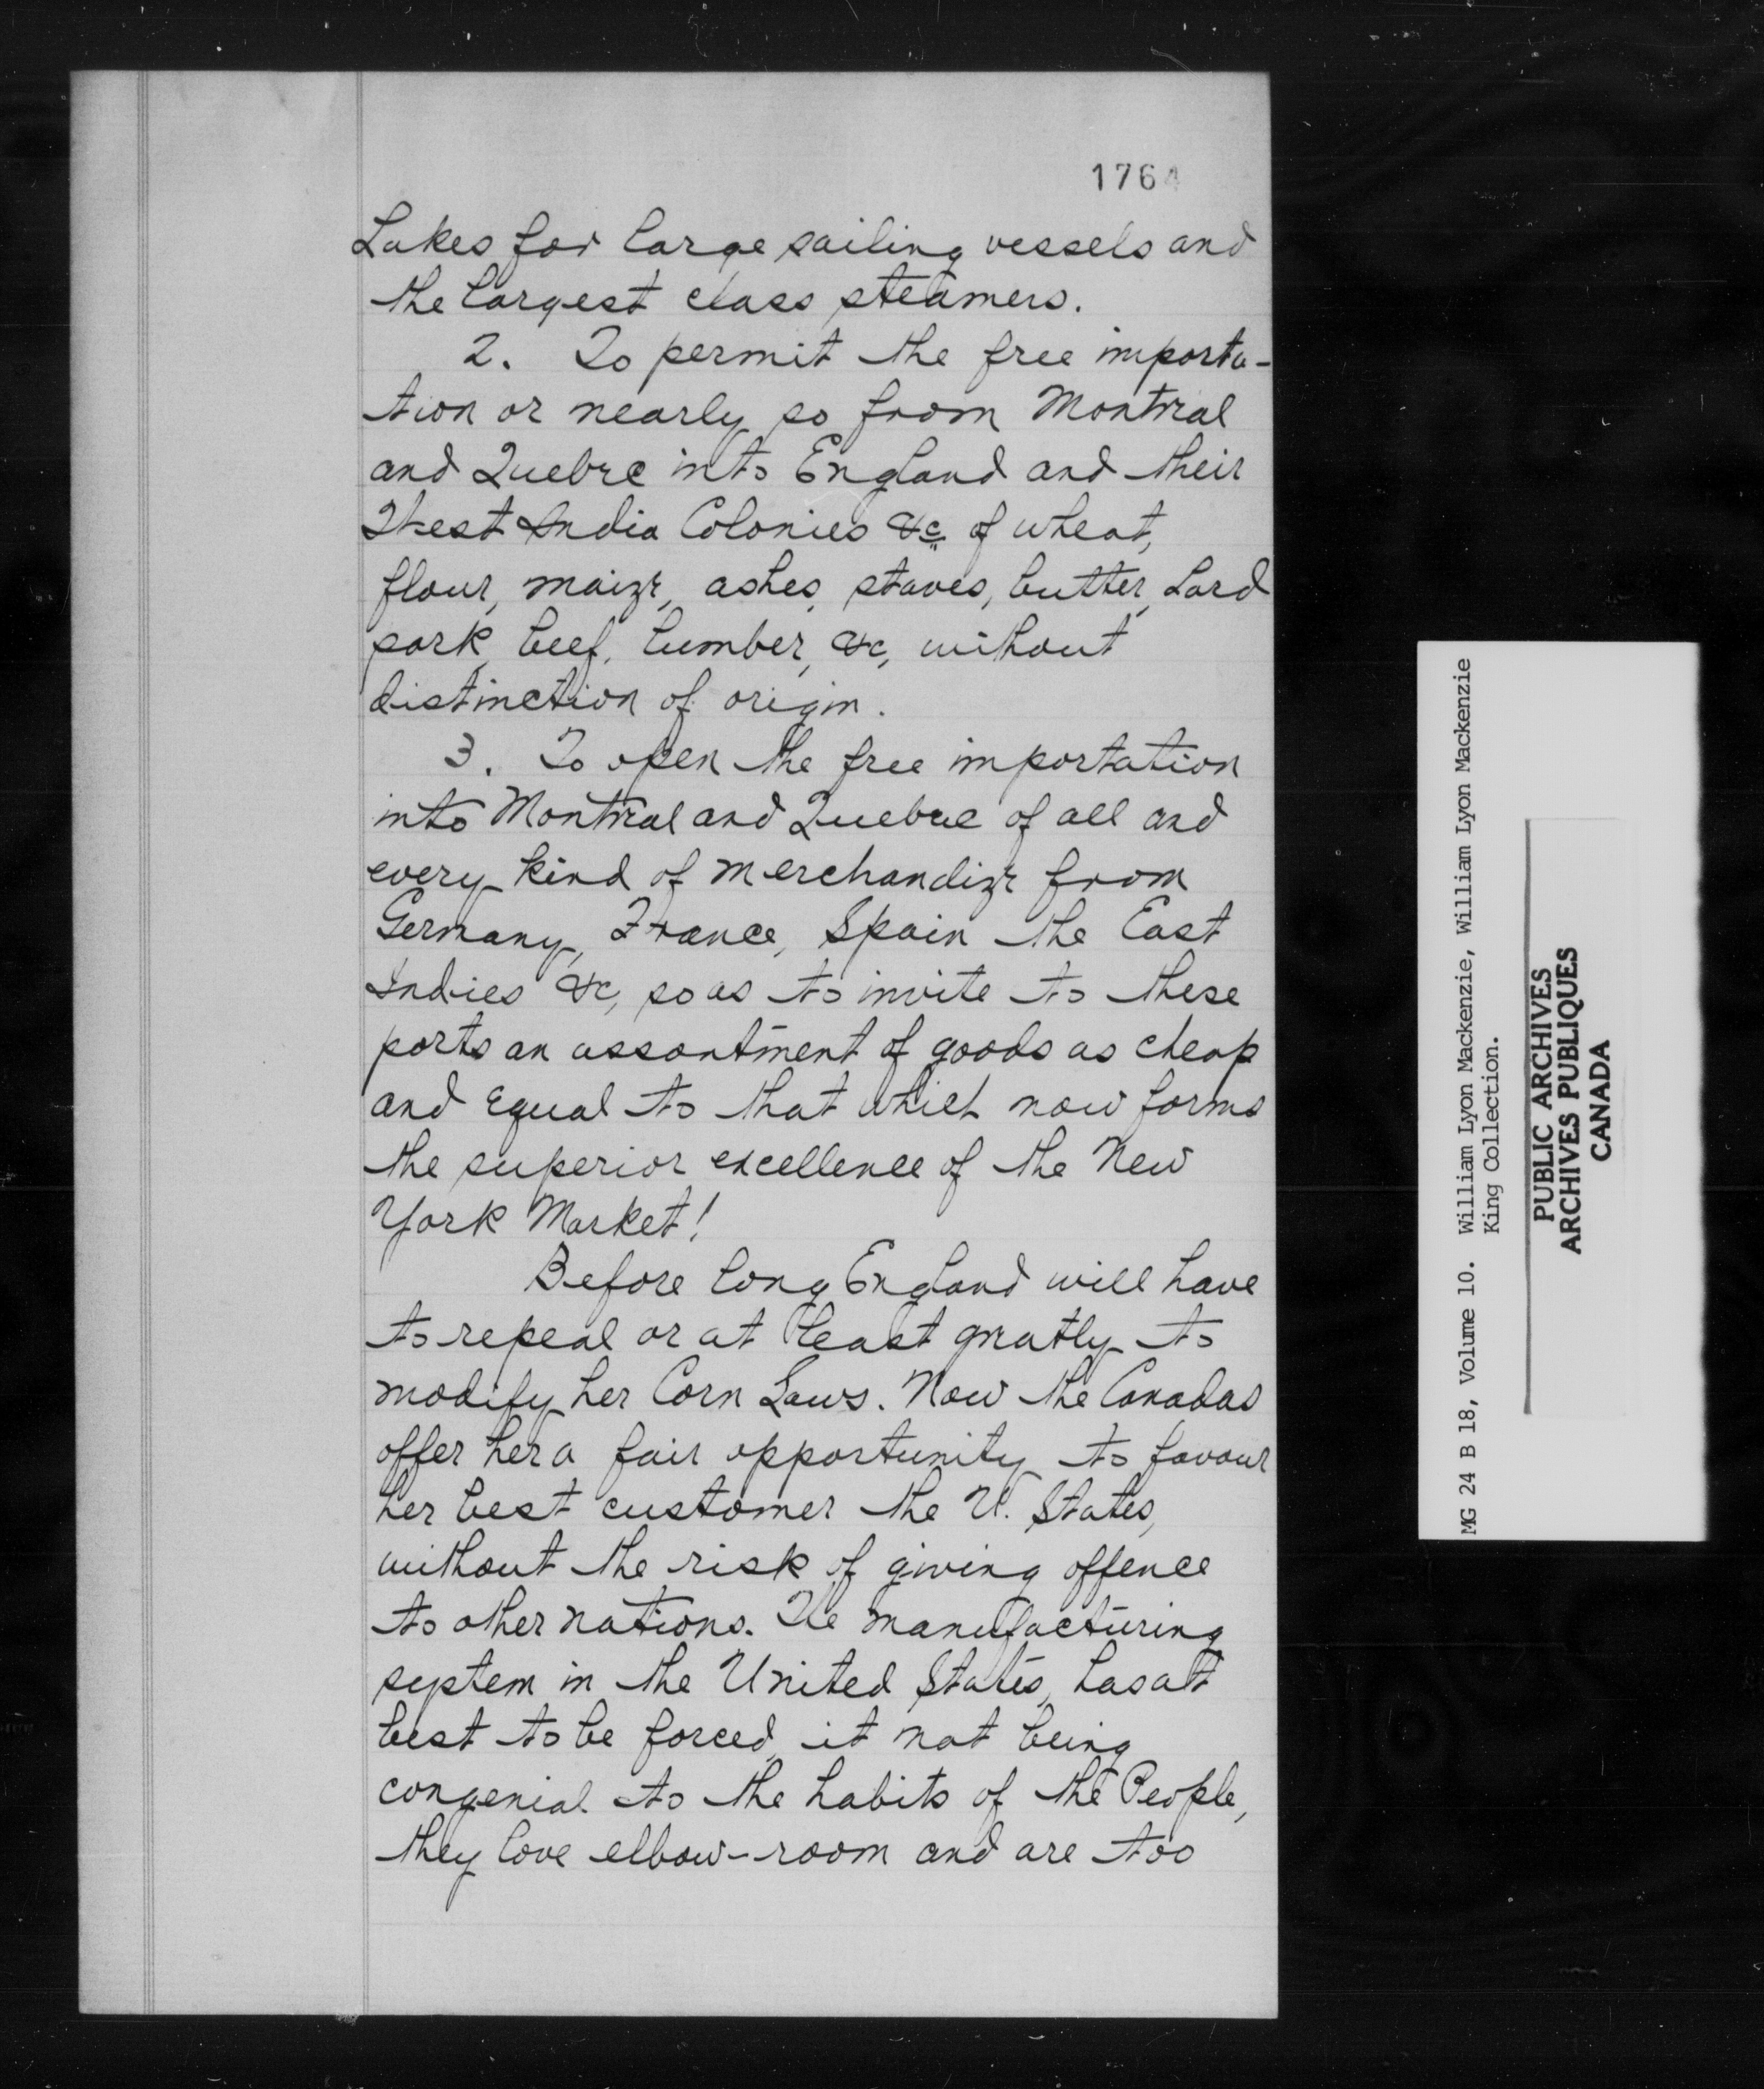 1764
Lakes for large sailing vessels and
the largest class steamers.
2. To permit the free importa-
tion or nearly so from Montreal
and Quebec into England and their
West India Colonies &c of wheat,
flour, maize, ashes, staves, butter, Lard
pork, beef, lumber, &c, without
distinction of origin.
3. To open the free importation
into Montreal and Quebec of all and
every kind of merchandize from
Germany, France, Spain the East
Indies &c, so as to invite to these
ports an assortment of goods as cheap
and equal to that which now forms
the superior excellence of the New
York Market!
Before long England will have
to repeal or at least greatly to
modify her Corn Laws. Now the Canadas
offer her a fair opportunity to favour
her best customer the U. States,
without the risk of giving offence
to other nations. The manufacturing
system in the United States, has at
best to be forced, it not being
congenial to the habits of the People,
they love elbow-room and are too
MG 24 B 18, Volume 10. William Lyon Mackenzie, William Lyon Mackenzie
King Collection.
PUBLIC ARCHIVES
ARCHIVES PUBLIQUES
CANADA